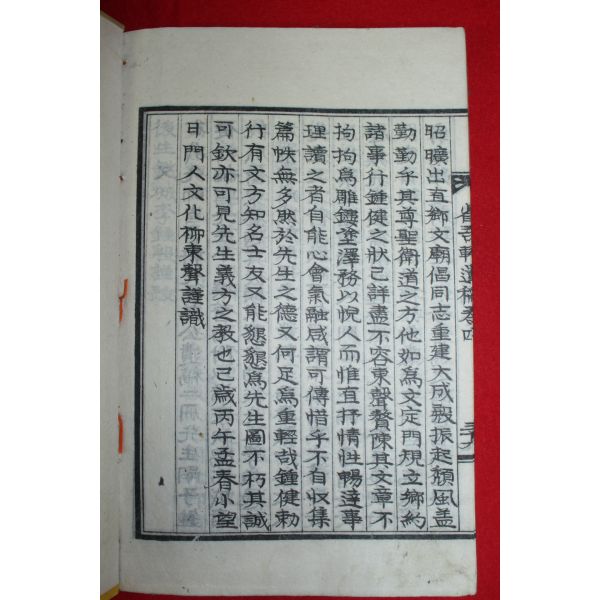 省吾軒遺稿卷四
昭曠出直鄉文廟倡同志重建大成殿振起頹風盖
勤勤乎其尊聖衛道之方他如為文定門規立鄉約
諸事行鍾健之狀已詳盡不容東聲贅陳其文章不
拘拘爲雕鏤塗澤務以悅人而惟直抒情性暢達事
理讀之者自能心會氣融咸謂可傳惜乎不自收集
篇帙無多然於先生之德又何足爲重輕哉鍾健勅
行有文方知名士友又能懇懇爲先生圖不朽其誠
可欽亦可見先生義方之教也已歲丙午孟春小望
日門人文化柳東聲謹識